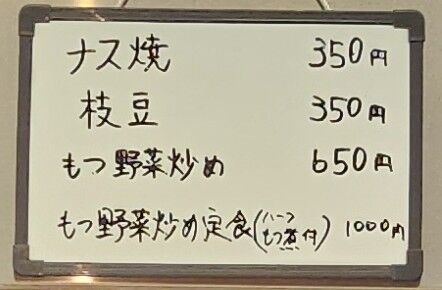 ナス焼 350円
枝豆 350円
もつ野菜炒め 650円
もつ野菜炒め定食(ハーフもつ煮付) 1000円